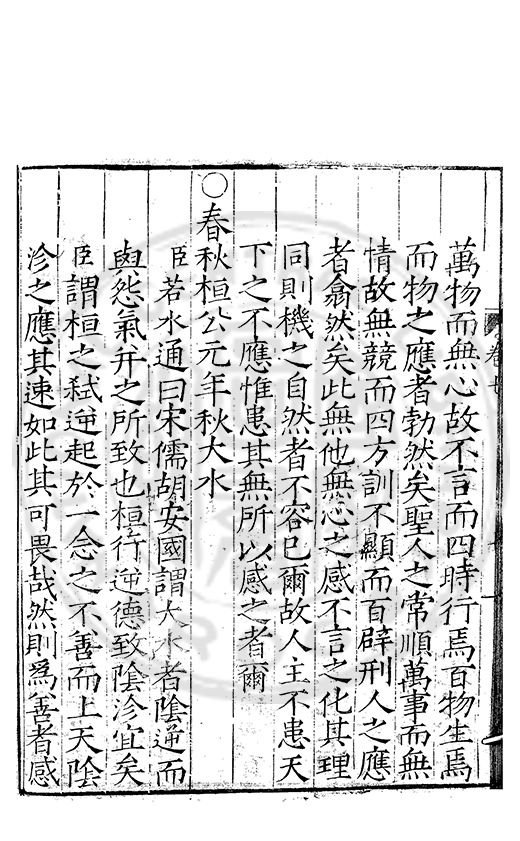 萬物而無心故不言而四時行焉百物生焉
而物之應者勃然矣聖人之常順萬事而無
情故無競而四方訓不顯而百辟刑人之應
者翕然矣此無他無心之感不言之化其理
同則機之自然者不容已爾故人主不患天
下之不應惟患其無所以感之者爾
○春秋桓公元年秋大水
臣若水通曰宋儒胡安國謂大水者陰逆而
與怨氣并之所致也桓行逆德致陰沴宜矣
臣謂桓之弑逆起於一念之不善而上天陰
沴之應其速如此其可畏哉然則爲善者感